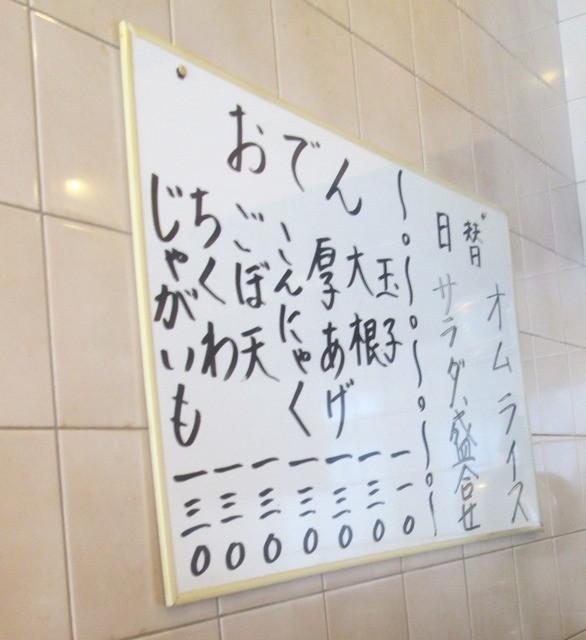 日替
オムライス
サラダ、盛合せ
おでん
玉子 一一〇
大根 一三〇
厚あげ 一三〇
こんにゃく 一三〇
ごぼ天 一三〇
ちくわ 一三〇
じゃがいも 一三〇